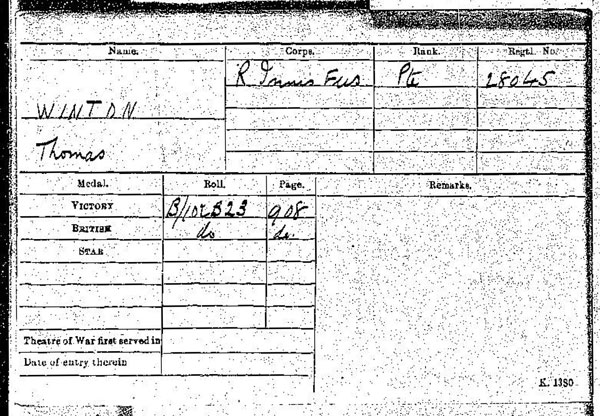 Name. Corps. Rank. Regtl. No.
R Innis Fus Pte 28045
WINTON
Thomas
Medal. Roll. Page. Remarks.
VICTORY B/102B23 908
BRITISH do do.
STAR
Theatre of War first served in
Date of entry therein
K. 1380